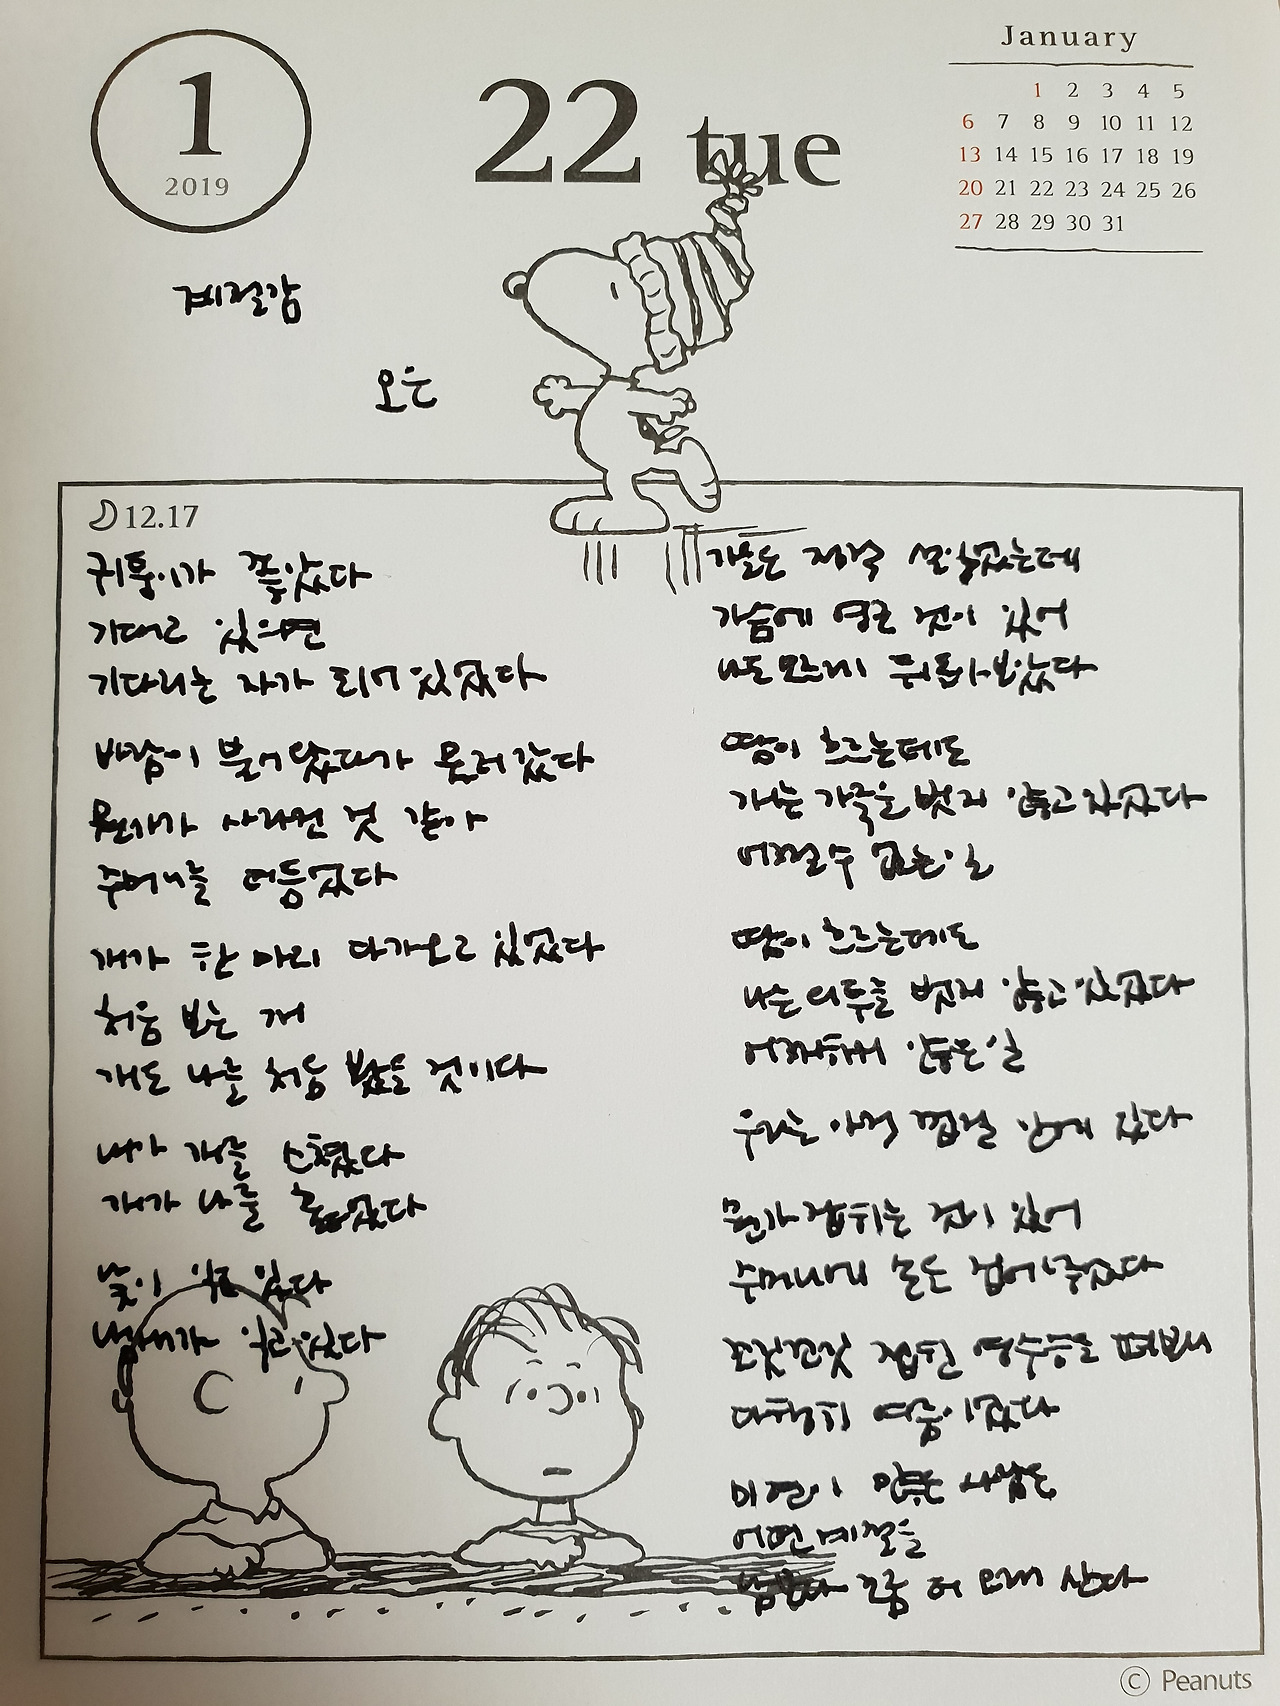 1
2019
22 tue
January
1 2 3 4 5
6 7 8 9 10 11 12
13 14 15 16 17 18 19
20 21 22 23 24 25 26
27 28 29 30 31
계절감
오은
12.17
귀퉁이가 좋았다
기대고 있으면
기다리는 자가 되어 있었다
바람이 불어왔다가 물러갔다
뭔가가 사라진 것 같아
주머니를 더듬었다
개가 한 마리 다가오고 있었다
처음 보는 개
개도 나를 처음 봤을 것이다
내가 개를 스쳤다
개가 나를 훑었다
낯이 익고 있다
냄새가 익고 있다
가을은 진작 설익었는데
가슴에 영근 것이 있어
나도 모르게 뒤를 돌아보았다
땀이 흐르는데도
개는 가죽을 벗지 않고 있었다
어쩔 수 없는 일
땀이 흐르는데도
나는 외투를 벗지 않고 있었다
어찌하지 않은 일
우리는 아직 껍질 안에 있다
뭔가 잡히는 것이 있어
주머니에 손을 집어넣었다
꼬깃꼬깃 접힌 영수증을 펴보니
다행히 여름이었다
미련이 많은 사람은
어떤 계절을
남보다 조금 더 오래 산다
© Peanuts